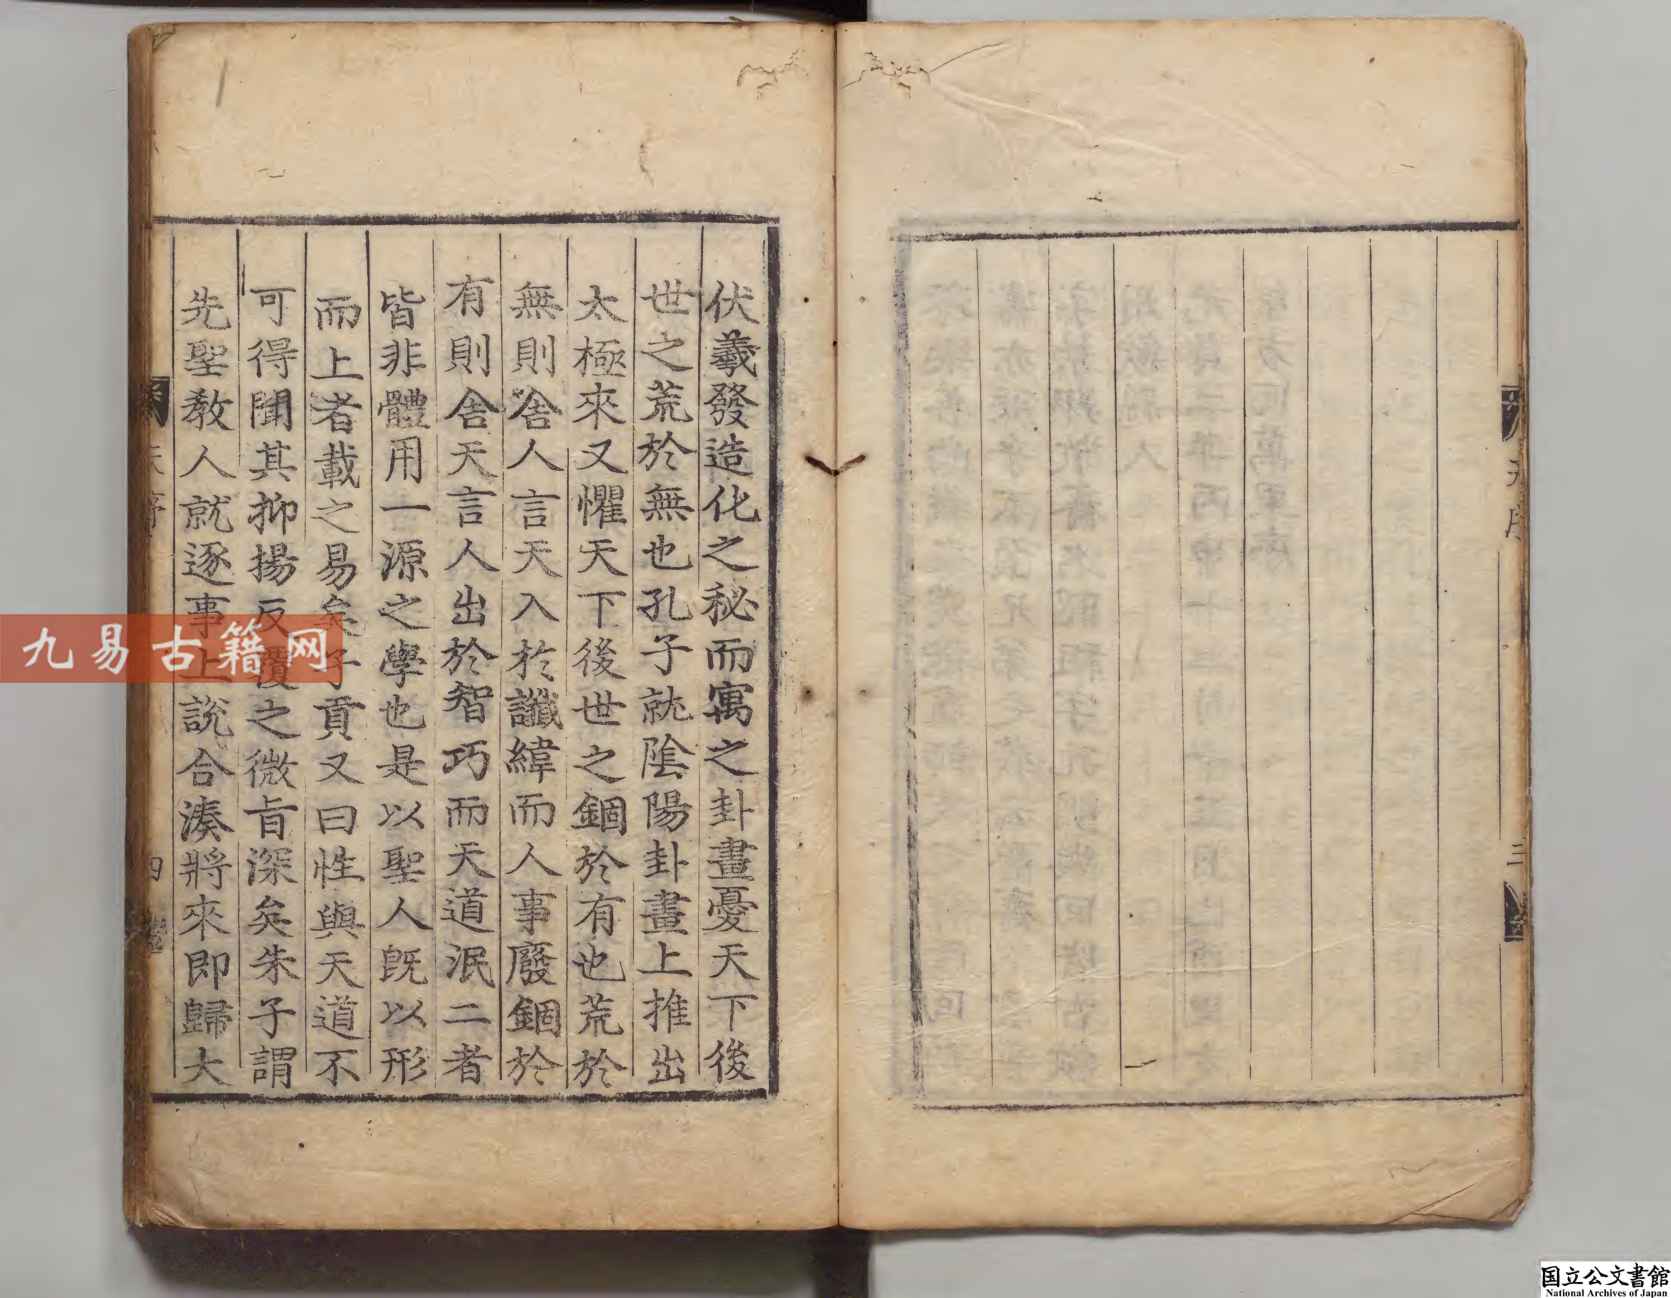 伏羲發造化之秘而寓之卦畫憂天下後
世之荒於無也孔子就陰陽卦畫上推出
太極來又懼天下後世之錮於有也荒於
無則舍人言天入於讖緯而人事廢錮於
有則舍天言人出於智巧而天道泯二者
皆非體用一源之學也是以聖人既以形
而上者載之易矣子貢又曰性與天道不
可得聞其抑揚反覆之微旨深矣朱子謂
先聖教人就逐事上說合湊將來即歸大
四
九易古籍网
国立公文書館
National Archives of Japan